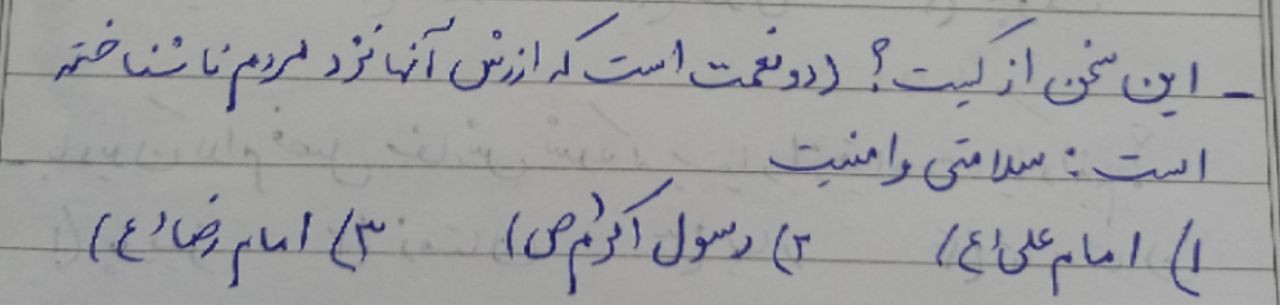 - این سخن از کیست؟ (دو نعمت است که ارزش آنها نزد مردم ناشناخته
است: سلامتی و امنیت
۱) امام علی (ع) ۲) رسول اکرم (ص) ۳) امام رضا (ع)